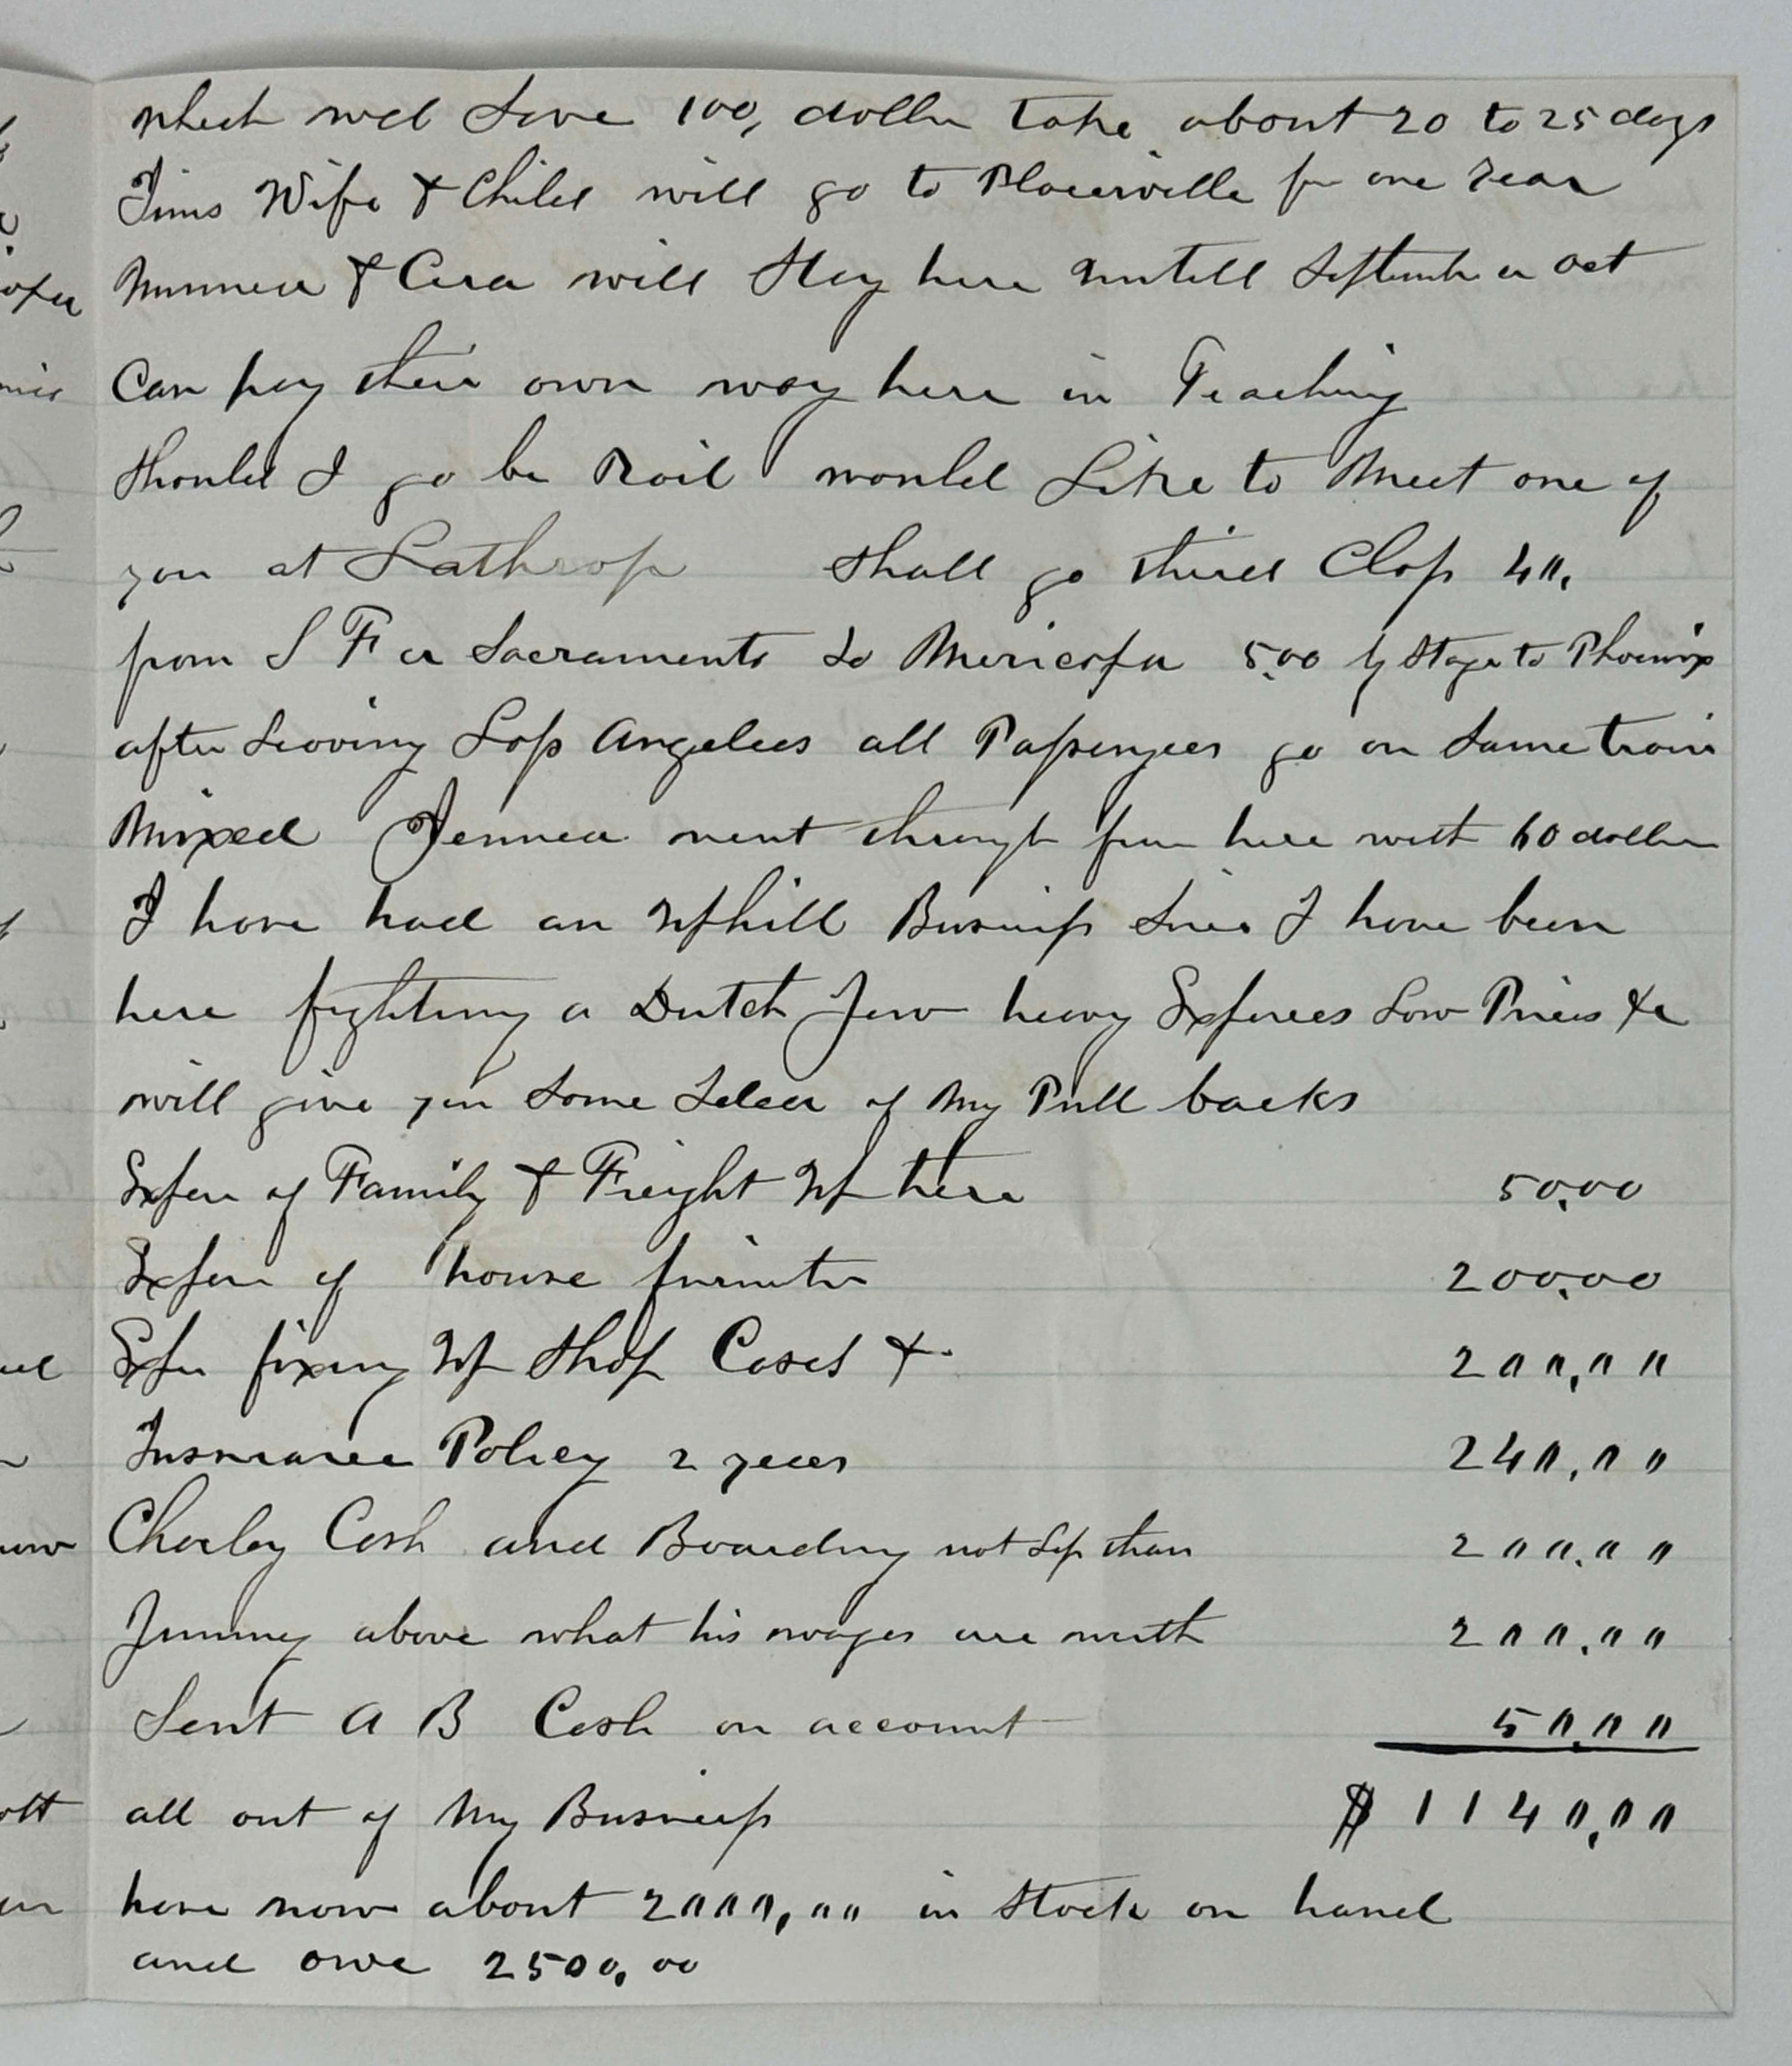 which will Save 100, dollar take about 20 to 25 days
Jims Wife & Child will go to Placerville for one Year
Minnea & Cara will Stay here untill September or Oct
Can pay their own way here in Teaching
Should I go be Rail would Like to Meet one of
you at Lathrop Shall go third Class 40,
from S F or Sacramento to Mericopa 5.00 by Stage to Phoenix
after Leaving Loss Angelees all Passengers go on Same train
Mixed Jennea went through from here with 60 dollar
I have had an Uphill Business Since I have been
here fighting a Dutch Jew heavy Expences Low Prices &c
will give you Some Idea of My Pull backs
Expen of Family & Freight Up here 50.00
Expen of house furnitur 200.00
Expen fixing Up Shop Cases & 200.00
Insurance Policy 2 years 240.00
Charley Cash and Boarding not Less than 200.00
Jimmy above what his wages are worth 200.00
Sent A B Cash on account 50.00
all out of My Business $1140.00
have now about 2000,00 in Stock on hand
and owe 2500.00